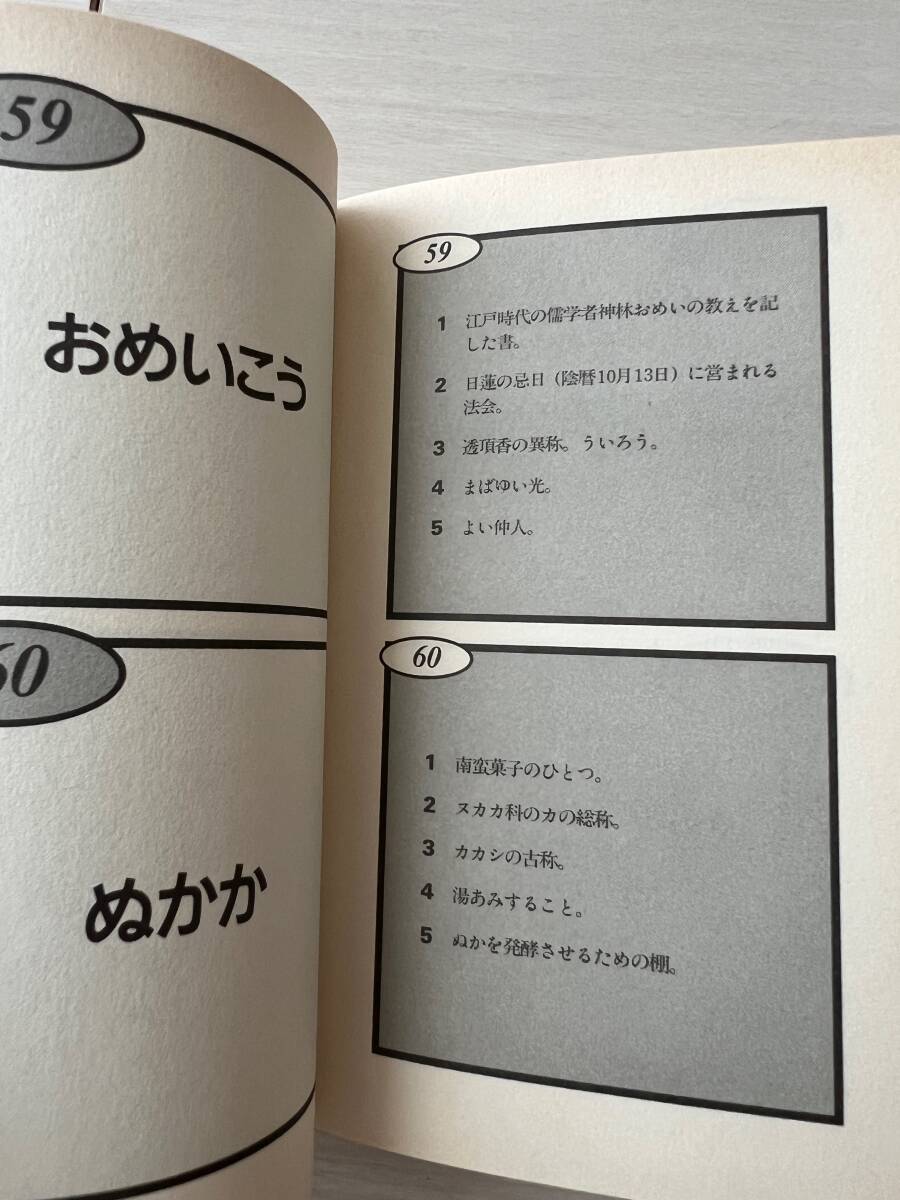 59
おめいこう
60
ぬかか
59
1 江戸時代の儒学者神林おめいの教えを記
した書。
2 日蓮の忌日（陰暦10月13日）に営まれる
法会。
3 透頂香の異称。ういろう。
4 まばゆい光。
5 よい仲人。
60
1 南蛮菓子のひとつ。
2 ヌカカ科のカの総称。
3 カカシの古称。
4 湯あみすること。
5 ぬかを発酵させるための棚。